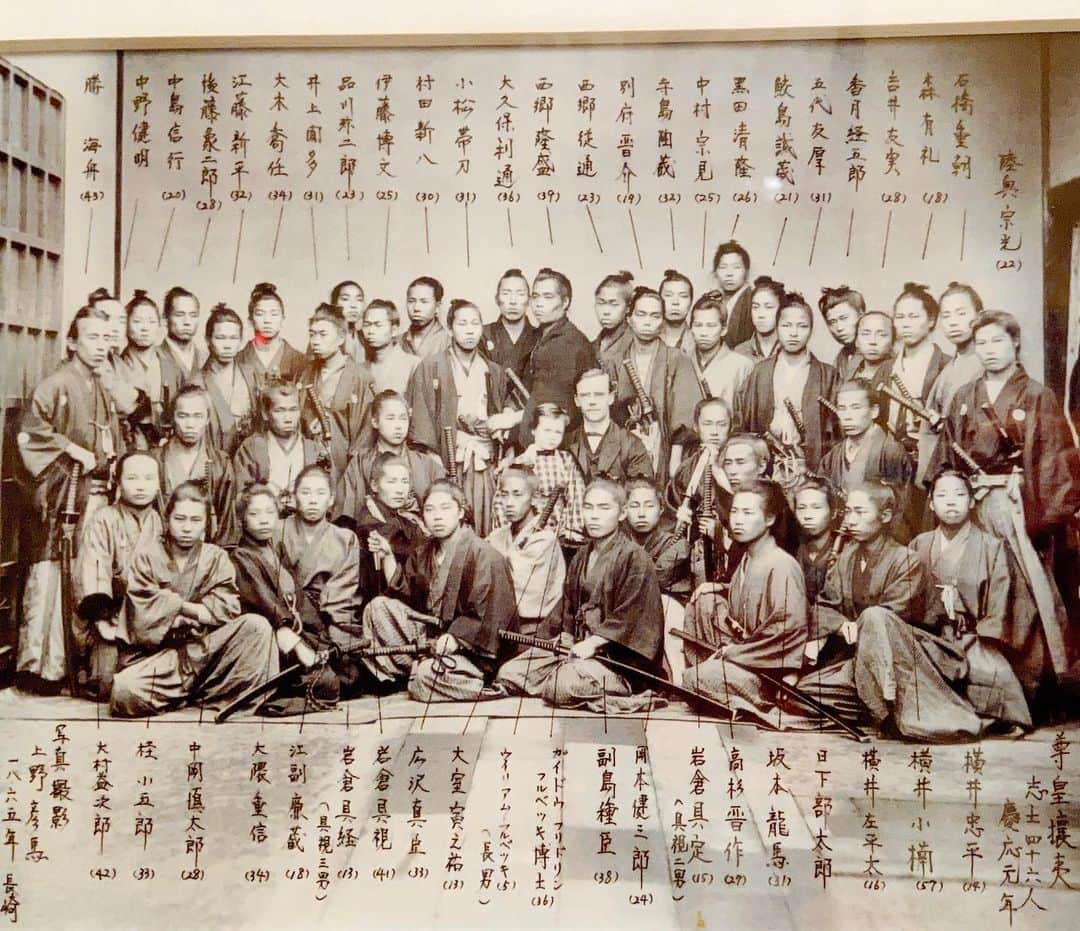 陸奥宗光(22)
石橋重朝
森有礼(18)
吉井友実(28)
香月経五郎
五代友厚(31)
鮫島誠蔵(21)
黒田清隆(26)
中村宗見(25)
寺島陶蔵(32)
別府晋介(19)
西郷従通(23)
西郷隆盛(39)
大久保利通(36)
小松帯刀(31)
村田新八(30)
伊藤博文(25)
品川弥二郎(23)
井上聞多(31)
大木喬任(34)
江藤新平(32)
後藤象二郎(28)
中島信行(20)
中野健明
勝海舟(43)
尊皇攘夷
志士四十六人
慶応元年
横井忠平(14)
横井小楠(57)
横井左平太(16)
日下部太郎
坂本龍馬(31)
高杉晋作(27)
岩倉具定(15)
(具視二男)
岡本健三郎(24)
副島種臣(38)
ガイドウ・フリドリン
フルベッキ博士(36)
ウイリアム・フルベッキ(5)
(長男)
大室寅之祐(13)
広沢真臣(33)
岩倉具視(41)
岩倉具経(13)
(具視三男)
江副廉蔵(18)
大隈重信(34)
中岡慎太郎(28)
桂小五郎(33)
大村益次郎(42)
写真撮影
上野彦馬
一八六五年 長崎